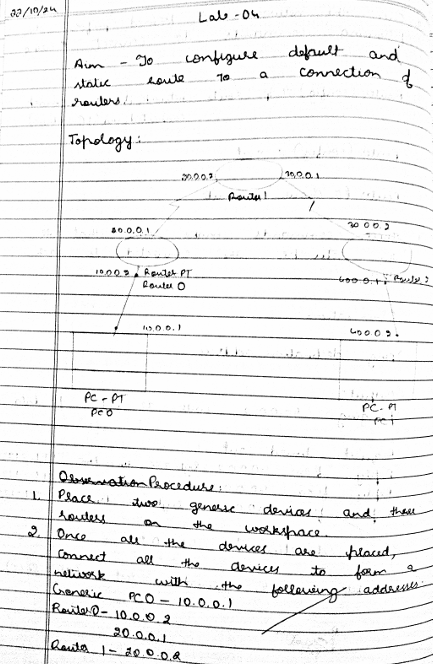 22/10/24
Lab - 04
Aim - To configure default and
static route to a connection of
routers.
Topology:
20.0.0.2 30.0.0.1
Router 1
20.0.0.1 30.0.0.2
10.0.0.2 Router PT
Router 0
40.0.0.1 Router 2
10.0.0.1 40.0.0.2
PC - PT
PC 0
PC - PT
PC 1
Observation Procedure:
1. Place two generic devices and three
routers on the workspace.
2. Once all the devices are placed,
connect all the devices to form a
network with the following addresses.
Generic PC0 - 10.0.0.1
Router0 - 10.0.0.2
20.0.0.1
Router 1 - 20.0.0.2